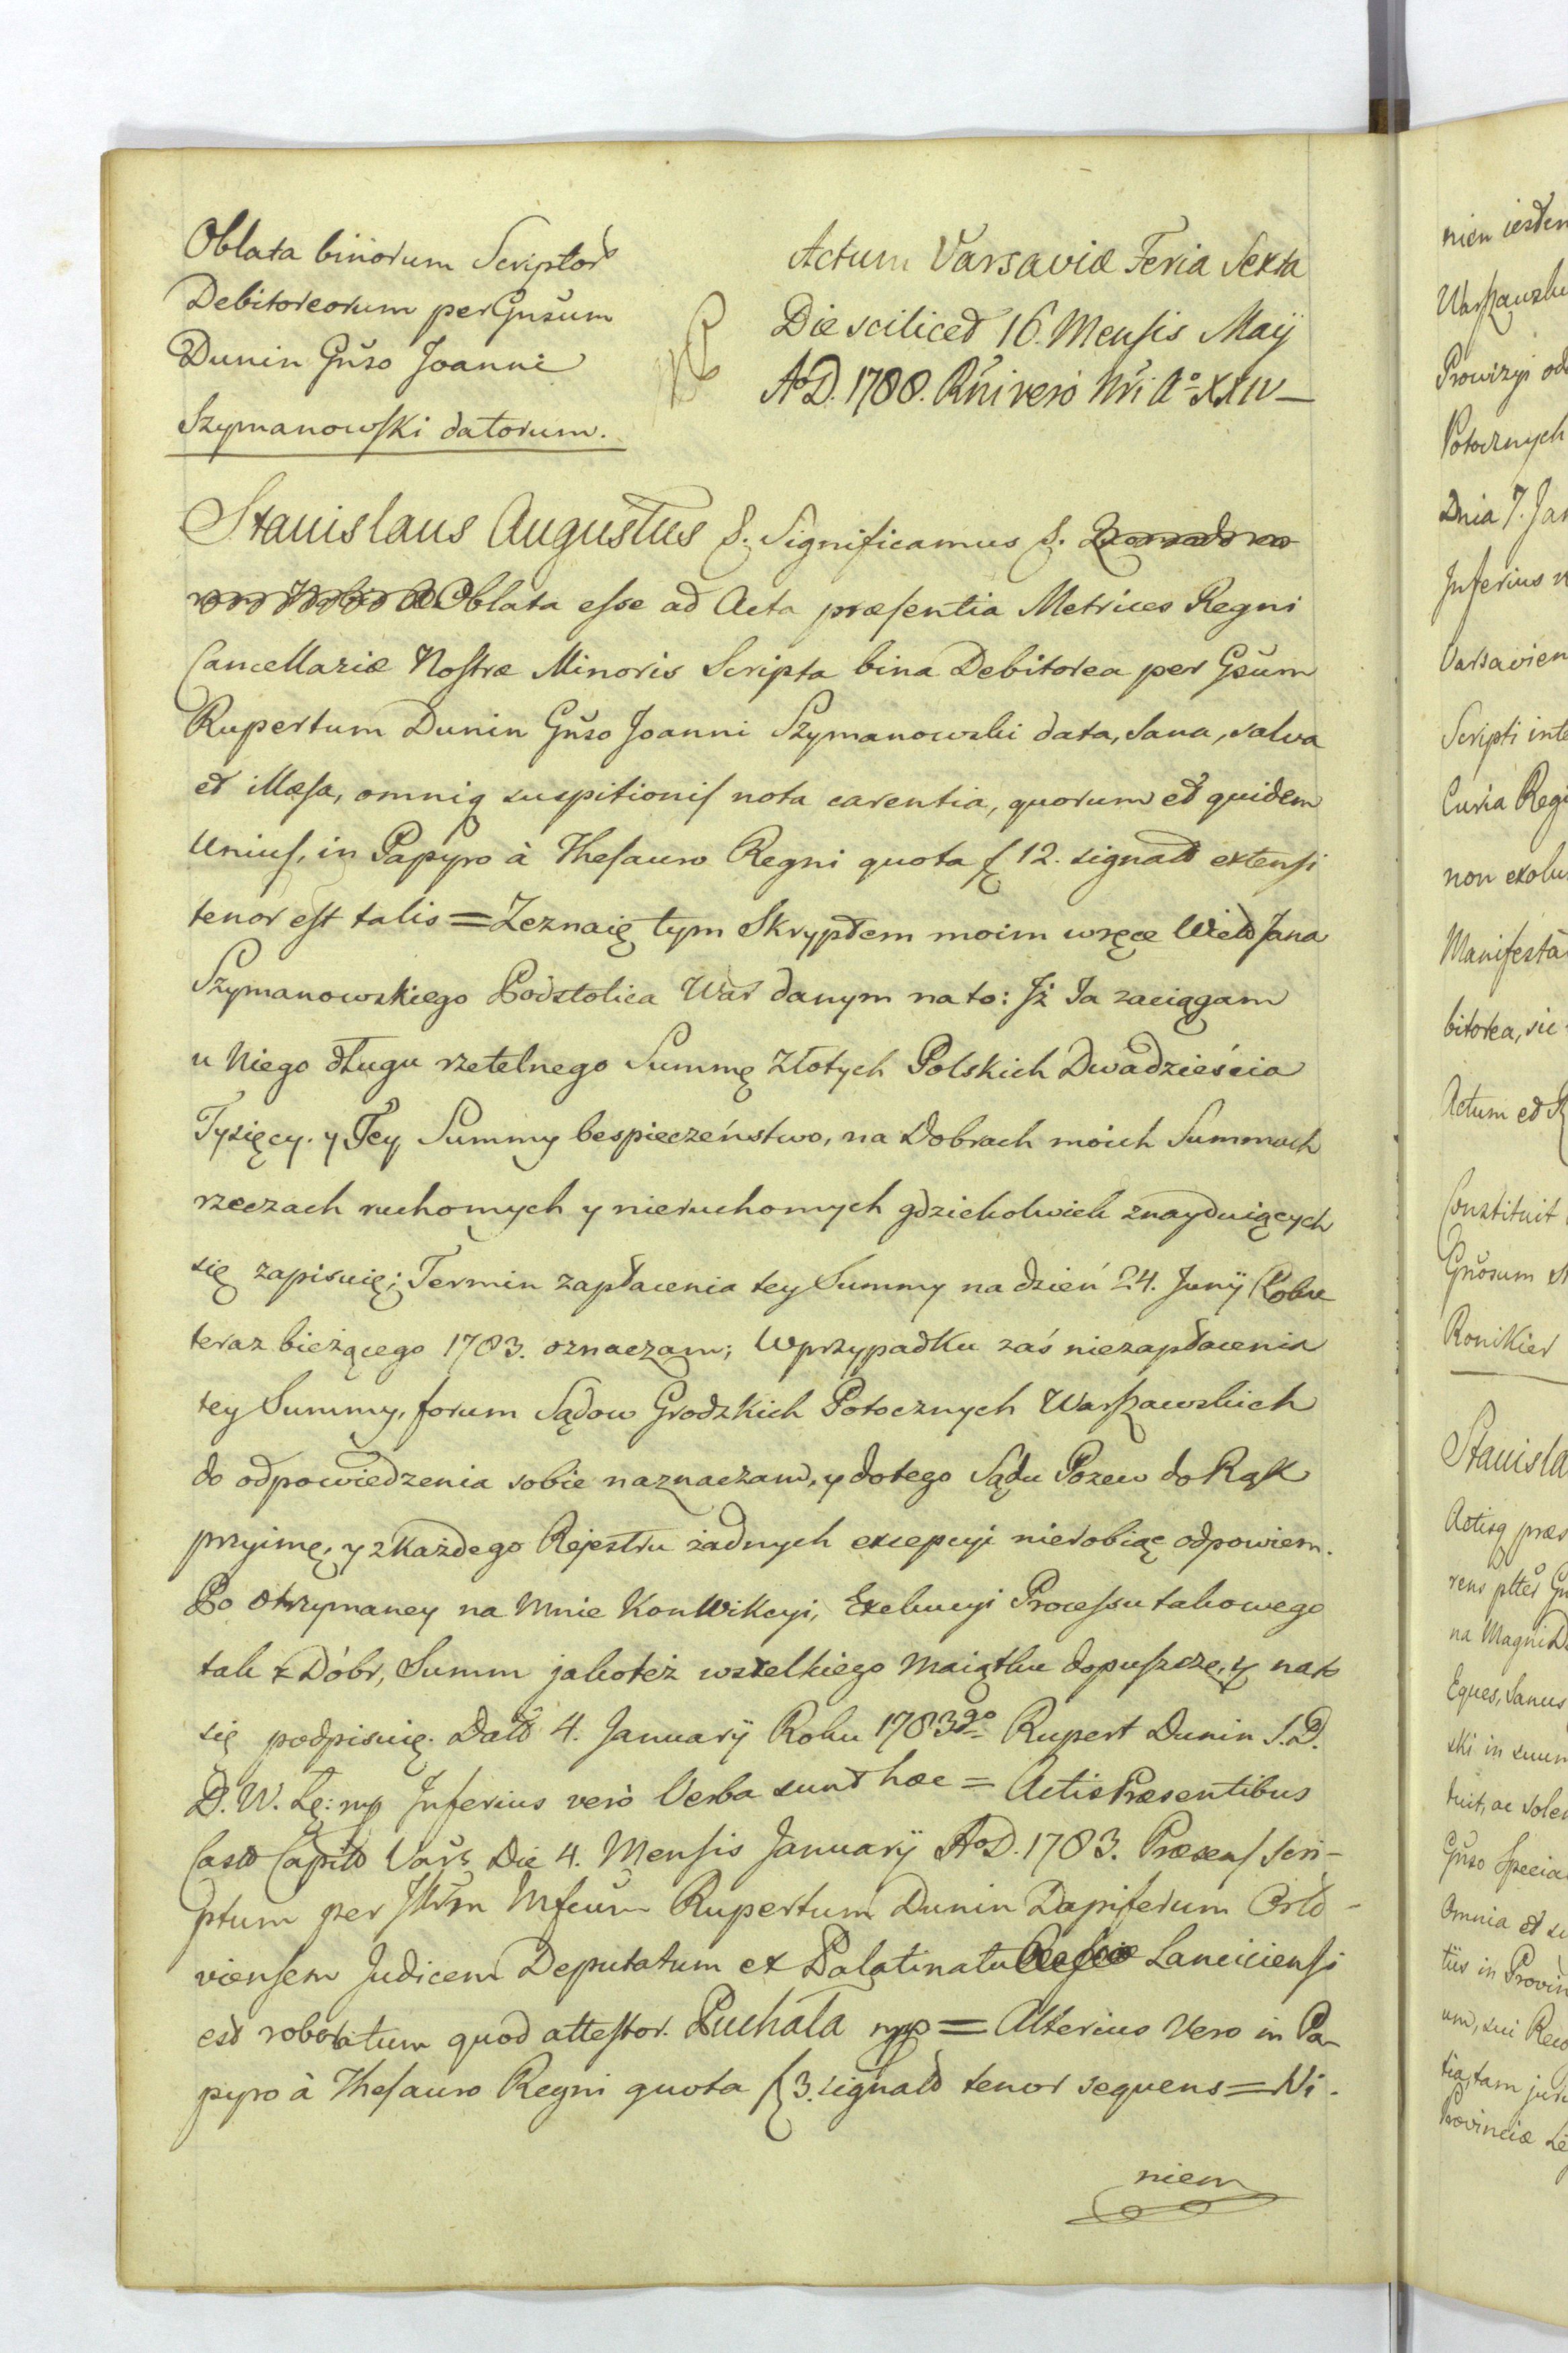 Oblata binorum Scriptor
Debitoreorum per Gnsum
Dunin Gnso Joanni
Szymanowski datorum.
Actum Varsaviæ Feria Sexta
Die scilicet 16. Mensis Maij
AoD. 1788. Rñi vero Nri Ao XXIV
Stanislaus Augustus &. Significamus &.
Oblata esse ad Acta præsentia Metrices Regni
Cancellariæ Nostræ Minoris Scripta bina Debitorea per Gsum
Rupertum Dunin Gnso Joanni Szymanowski data, sana, salva
et illæsa, omniq suspitionis nota carentia, quorum et quidem
Unius, in Papyro à Thesauro Regni quota f 12. signat extensi
tenor est talis = Zeznaię tym Skryptem moim w ręce Wielo Jana
Szymanowskiego Podstolica War danym na to: Jż Ja zaciągam
u Niego długu rzetelnego Summę Złotych Polskich Dwadzieścia
Tysięcy. y Tey Summy bespieczeństwo, na Dobrach moich Summach
rzeczach ruchomych y nieruchomych gdziekolwiek znayduiących
się zapisuię; Termin zapłacenia tey Summy na dzień 24. Junij Roku
teraz bieżącego 1783. oznaczam; W przypadku zaś niezapłacenia
tey Summy, forum Sądow Grodzkich Potocznych Warszawskich
do odpowiedzenia sobie naznaczam, y do tego Sądu Pozew do Rąk
przyimę, y z Każdego Rejestru żadnych excepcyi nierobiąc odpowiem.
Po otrzymaney na Mnie Konwikcyi, Exekucyi Processu takowego
tak z Dóbr, Summ jako też wszelkiego Maiątku dopuszczę, y na to
się podpisuię. Dat 4. Januarij Roku 1783go Rupert Dunin S. D.
D. W. Łę: mp Inferius verò Verba sunt hæc = Actis Præsentibus
Cast Capit Vars Die 4. Mensis Januarij AoD. 1783. Præsens Scri-
ptum per Jllrm Mfcum Rupertum Dunin Dapiferum Orło-
viensem Judicem Deputatum ex Palatinatu Lanciciensi
est roboratum quod attestor. Puchała mp = Alterius Vero in Pa-
pyro à Thesauro Regni quota f 3. signat tenor sequens = Ni-
niem
nien iesten
Warszawsk
Prowizyi od
Potocznych
Dnia 7. Jan
Inferius
Varsavien
Scripti inte
Curia Regi
non exolu
Manifesta
bitorea, sic
Actum et
Constituit
Gnosum
Ronikier
Stanisla
Actisq præs
rens
na Magni D
Eques, Sanus
ski in suum
tuit, ac solen
Gnso Specia
Omnia et
tiis in Provin
um, sui
tia, tam juri
Provinciæ